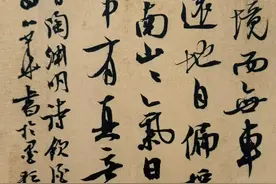 境而無車
遠地自偏採
南山〻氣日
中有真
陶淵明詩飲酒
書於墨